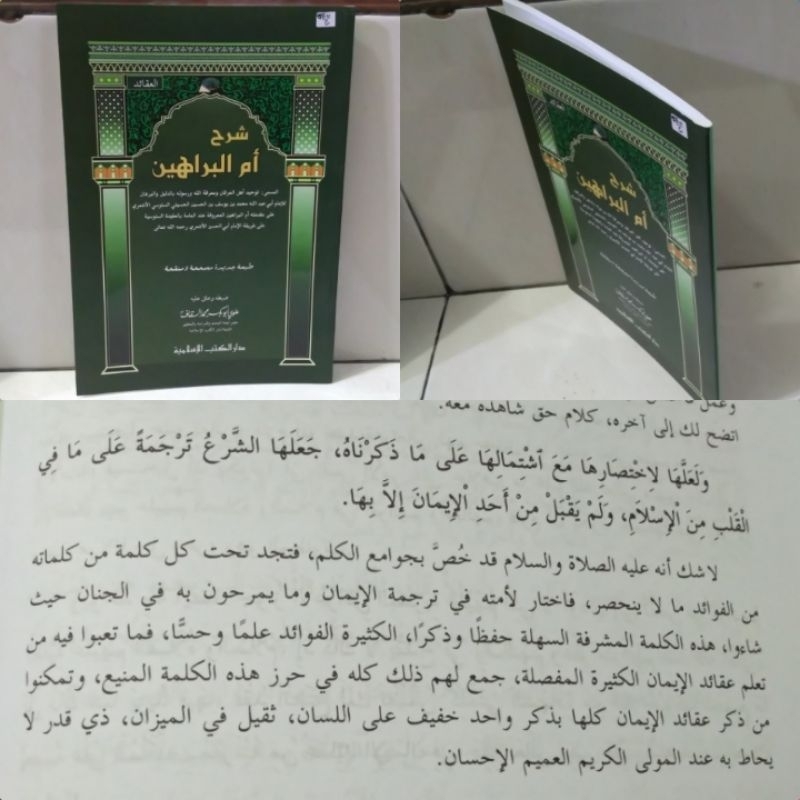 العقائد
شرح
أم البراهين
المسمى: توحيد أهل العرفان ومعرفة الله ورسوله بالدليل والبرهان
للإمام أبي عبد الله محمد بن يوسف بن الحسين الحسيني السنوسي الأشعري
على مقدمته أم البراهين المعروفة عند العامة بالعقيدة السنوسية
على طريقة الإمام أبي الحسن الأشعري رحمه الله تعالى
طبعة جديدة مصححة ومنقحة
ضبطه وعلق عليه
دار الكتب الإسلامية
العقائد
شرح
أم البراهين
وعمل
اتضح لك إلى آخره، كلام حق شاهده معه.
وَلَعَلَّهَا لِاخْتِصَارِهَا مَعَ ٱشْتِمَالِهَا عَلَى مَا ذَكَرْنَاهُ، جَعَلَهَا الشَّرْعُ تَرْجَمَةً عَلَى مَا فِي
الْقَلْبِ مِنَ الْإِسْلَامِ، وَلَمْ يَقْبَلْ مِنْ أَحَدٍ الْإِيمَانَ إِلاَّ بِهَا.
لاشك أنه عليه الصلاة والسلام قد خُصَّ بجوامع الكلم، فتجد تحت كل كلمة من كلماته
من الفوائد ما لا ينحصر، فاختار لأمته في ترجمة الإيمان وما يمرحون به في الجنان حيث
شاءوا، هذه الكلمة المشرفة السهلة حفظًا وذكرًا، الكثيرة الفوائد علمًا وحسًّا، فما تعبوا فيه من
تعلم عقائد الإيمان الكثيرة المفصلة، جمع لهم ذلك كله في حرز هذه الكلمة المنيع، وتمكنوا
من ذكر عقائد الإيمان كلها بذكر واحد خفيف على اللسان، ثقيل في الميزان، ذي قدر لا
يحاط به عند المولى الكريم العميم الإحسان.